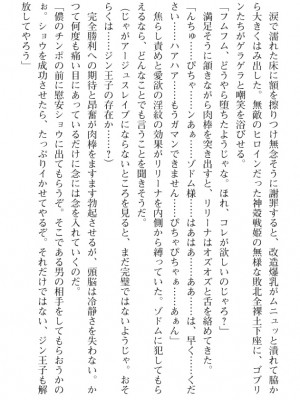 涙で濡れた床に額を擦りつけ無念そうに謝罪すると、改造爆乳がムニュッと潰れて脇か
ら大きくはみ出した。無敵のヒロインだった神装戦姫の無様な敗北全裸土下座に、ゴブリ
ンたちがゲラゲラと嘲笑を浴びせる。
「フムフム、どうやら堕ちたようじゃな。ほれ、コレが欲しいのじゃろ?」
満足そうに頷きながら肉棒を突き出すと、リリーナはオズオズと舌を絡めてきた。
「んちゅ……ぴちゃ……ンあぁ……ゾドム様……はあはぁ……ああ……早く……くだ
さい……ハアハア……もうガマンできません……ぴちゃぴちゃぁ……あぁん」
焦らし責めと愛欲の淫紋の効果がリリーナを内側から縛っていた。ゾドムに犯してもら
えるなら、どんなことでも言うことを聞きそうだ。
(じゃがアージュスレイブにならないところを見ると、まだ完璧ではないようじゃ。おそ
らくは……ジン王子の存在か……?)
完全勝利への期待と昂奮が肉棒をますます勃起させるが、頭脳は冷静さを失わない。か
つて何度も痛い目にあっているだけに念には念を入れていくのだ。
「儂のチンポの前に慰安ショウに出てもらうぞ。そこである男の相手をしてもらおうかの
ぉ。ショウを成功させたら、たっぷりイかせてやるぞ。それだけではない、ジン王子も解
放してやろう」